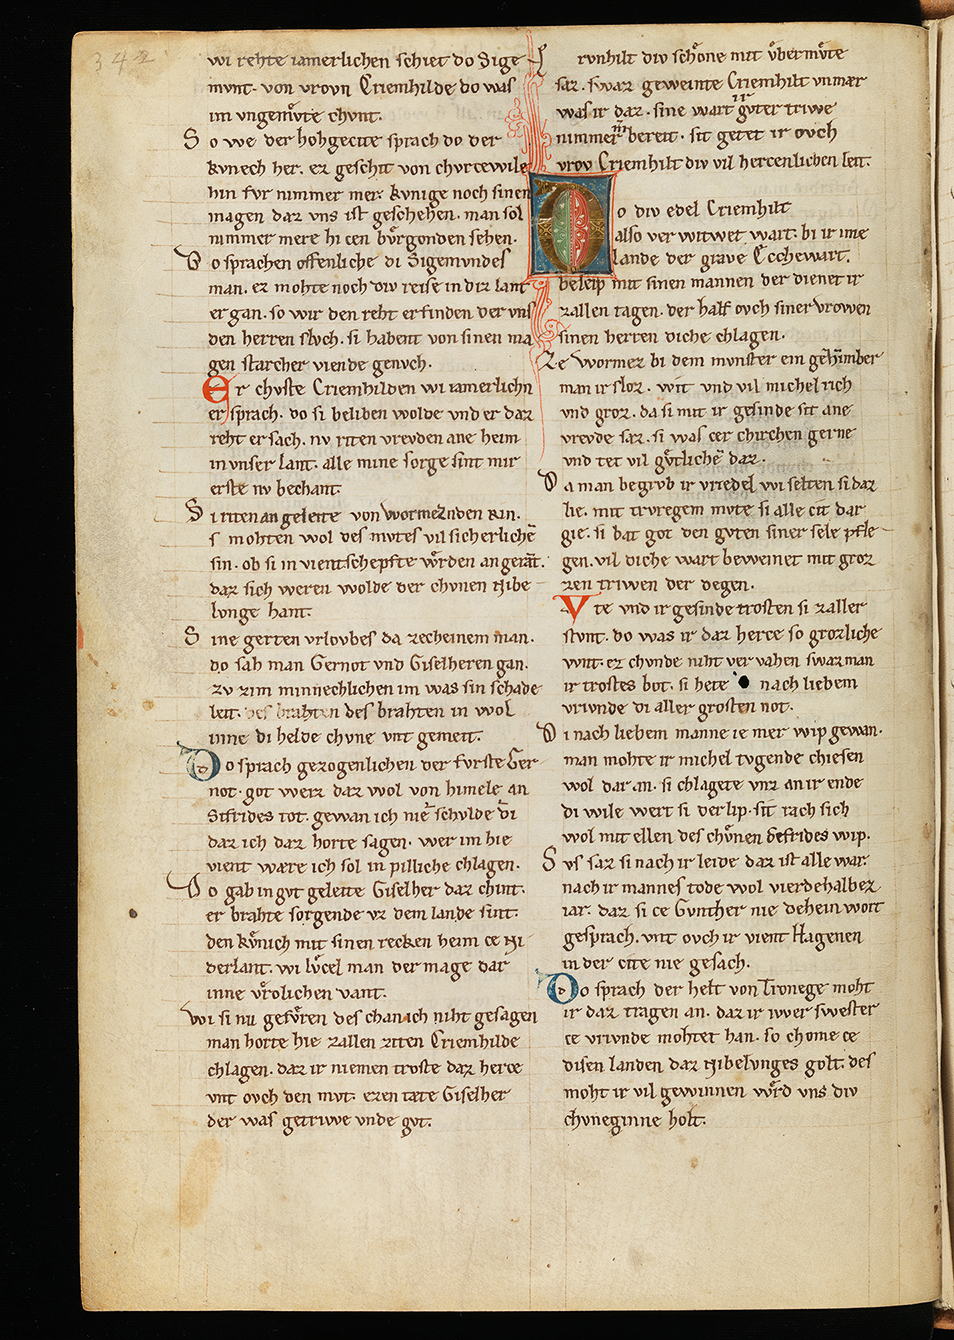 342
wi rehte iamerlichen schiet do Sige
mvnt. von vrovn Criemhilde do was
im vngemvͤte chvnt.
So we der hohgecite sprach do der
kvnech her. ez geschit von chvrcewile
hin fvr nimmer mer. kvnige noch sinen
magen daz vns ist geschehen. man sol
nimmer mere hi cen bvͤrgonden sehen.
Do sprachen offenliche di Sigemvndes
man. ez mohte noch div reise in diz lant
ergan. so wir den reht erfinden der vns
den herren slvch. si habent von sinen ma
gen starcher viende genvch.
Er chvste Criemhilden wi iamerlichn
er sprach. do si beliben wolde vnd er daz
reht ersach. nv riten vrevden ane heim
in vnser lant. alle mine sorge sint mir
erste nv bechant.
Si riten an geleite von wormez nden Rin.
s mohten wol des mvtes vil sicherlichē
sin. ob si in vientschepfte wͦrden an gerāt.
daz sich weren wolde der chvnen Nibe
lvnge hant.
Sine gerten vrlovbes da zecheinem man.
do sah man Gernot vnd Giselheren gan.
zv zim minnechlichen im was sin schade
leit. des brahten des brahten in wol
inne di helde chvne vnt gemeit.
Do sprach gezogenlichen der fvrste Ger
not. got weiz daz wol von himele an
Sifrides tot. gewan ich nie schvlde di
daz ich daz horte sagen. wer im hie
vient wære ich sol in pilliche chlagen.
Do gab in gvt geleite Giselher daz chint.
er brahte sorgende vz dem lande sint.
den kvͤnich mit sinen recken heim ce Ni
derlant. wi lvͤcel man der mage dar
inne vrͦlichen vant.
Wi si nu gefvͤren des chan ich niht gesagen
man horte hie zallen ziten Criemhilde
chlagen. daz ir niemen troste daz herce
vnt ovch den mvt. ezen tæte Giselher
der was getriwe vnde gvt.
Prvnhilt div schͦne mit vͤbermvͤte
saz. swaz geweinte Criemhilt vnmær
was ir daz. sine wart ir gvter triwe
nimmer m bereit. sit getet ir ovch
vrov Criemhilt div vil hercenlichen leit.
Do div edel Criemhilt
also verwitwet wart. bi ir ime
lande der grave Ecchewart.
beleip mit sinen mannen der dienet ir
zallen tagen. der half ovch siner vrowen
sinen herren diche chlagen.
Ze Wormez bi dem mvnster ein gecimber
man ir sloz. wit vnd vil michel rich
vnd groz. da si mit ir gesinde sit ane
vrevde saz. si was cer chirchen gerne
vnd tet vil gvͤtliche daz.
Da man begrvb ir vriedel wi selten si daz
lie. mit trvregem mvte si alle cit dar
gie. si bat got den gvten siner sele pfle
gen. vil diche wart beweinet mit groz
zen triwen der degen.
Vte vnd ir gesinde trosten si zaller
stvnt. do was ir daz herce so grozliche
wnt. ez chvnde niht vervahen swaz man
ir trostes bot. si hete nach liebem
vrivnde di aller grosten not.
Di nach liebem manne ie mer wip gewan.
man mohte ir michel tvgende chiesen
wol dar an. si chlagete vnz an ir ende
di wile wert si der lip. sit rach sich
wol mit ellen des chvͤnen Sefrides wip.
Svs saz si nach ir leide daz ist alle war.
nach ir mannes tode wol vierdehalbez
iar. daz si ce Gvnther nie dehein wort
gesprach. vnt ovch ir vient Hagenen
in der cite nie gesach.
Do sprach der helt von Tronege moht
ir daz tragen an. daz ir iwer swester
ce vrivnde mohtet han. so chome ce
disen landen daz Nibelvnges golt. des
moht ir vil gewinnen wͦrd vns div
chvneginne holt.